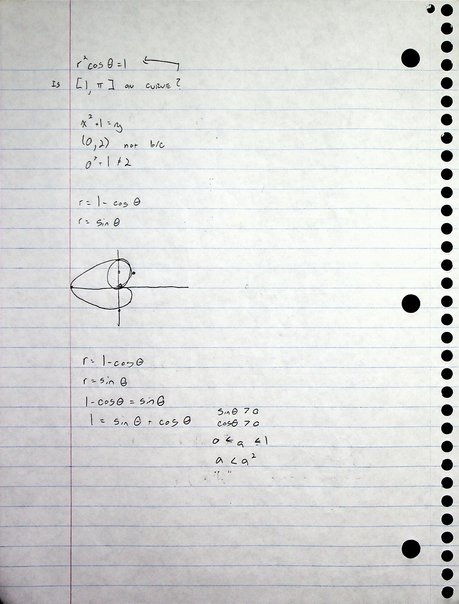 r² cos θ = 1
Is [1, π] on curve?
x² + 1 = y
(0, 2) not b/c
0² + 1 ≠ 2
r = 1 - cos θ
r = sin θ
r = 1 - cos θ
r = sin θ
1 - cos θ = sin θ
1 = sin θ + cos θ
sin θ > 0
cos θ > 0
0 ≤ a ≤ 1
a < a²